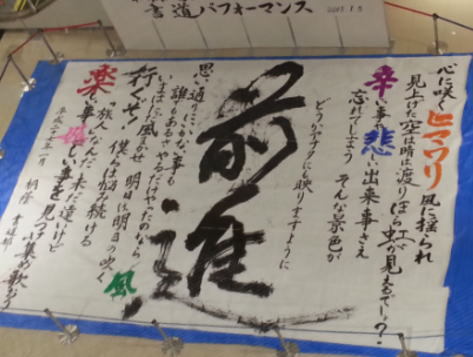 書道パフォーマンス
心に咲くヒマワリ 風に揺られ
見上げた空は時は渡りほら虹が見えるでしょ?
辛い事や悲しい出来事さえ
忘れてしまう そんな景色が
どうかアナタにも映りますように
前進
思い通りにいかない事も
誰もあるさ やるだけやったのなら
いまはただ風まかせ 明日は明日の吹く風
行くぜ! 僕らは悩み続ける
旅人なんだ 未だ遠いけど
楽しい事嬉しい事を見つけ集め歌おう
平成二十七年一月 桐蔭 書道部